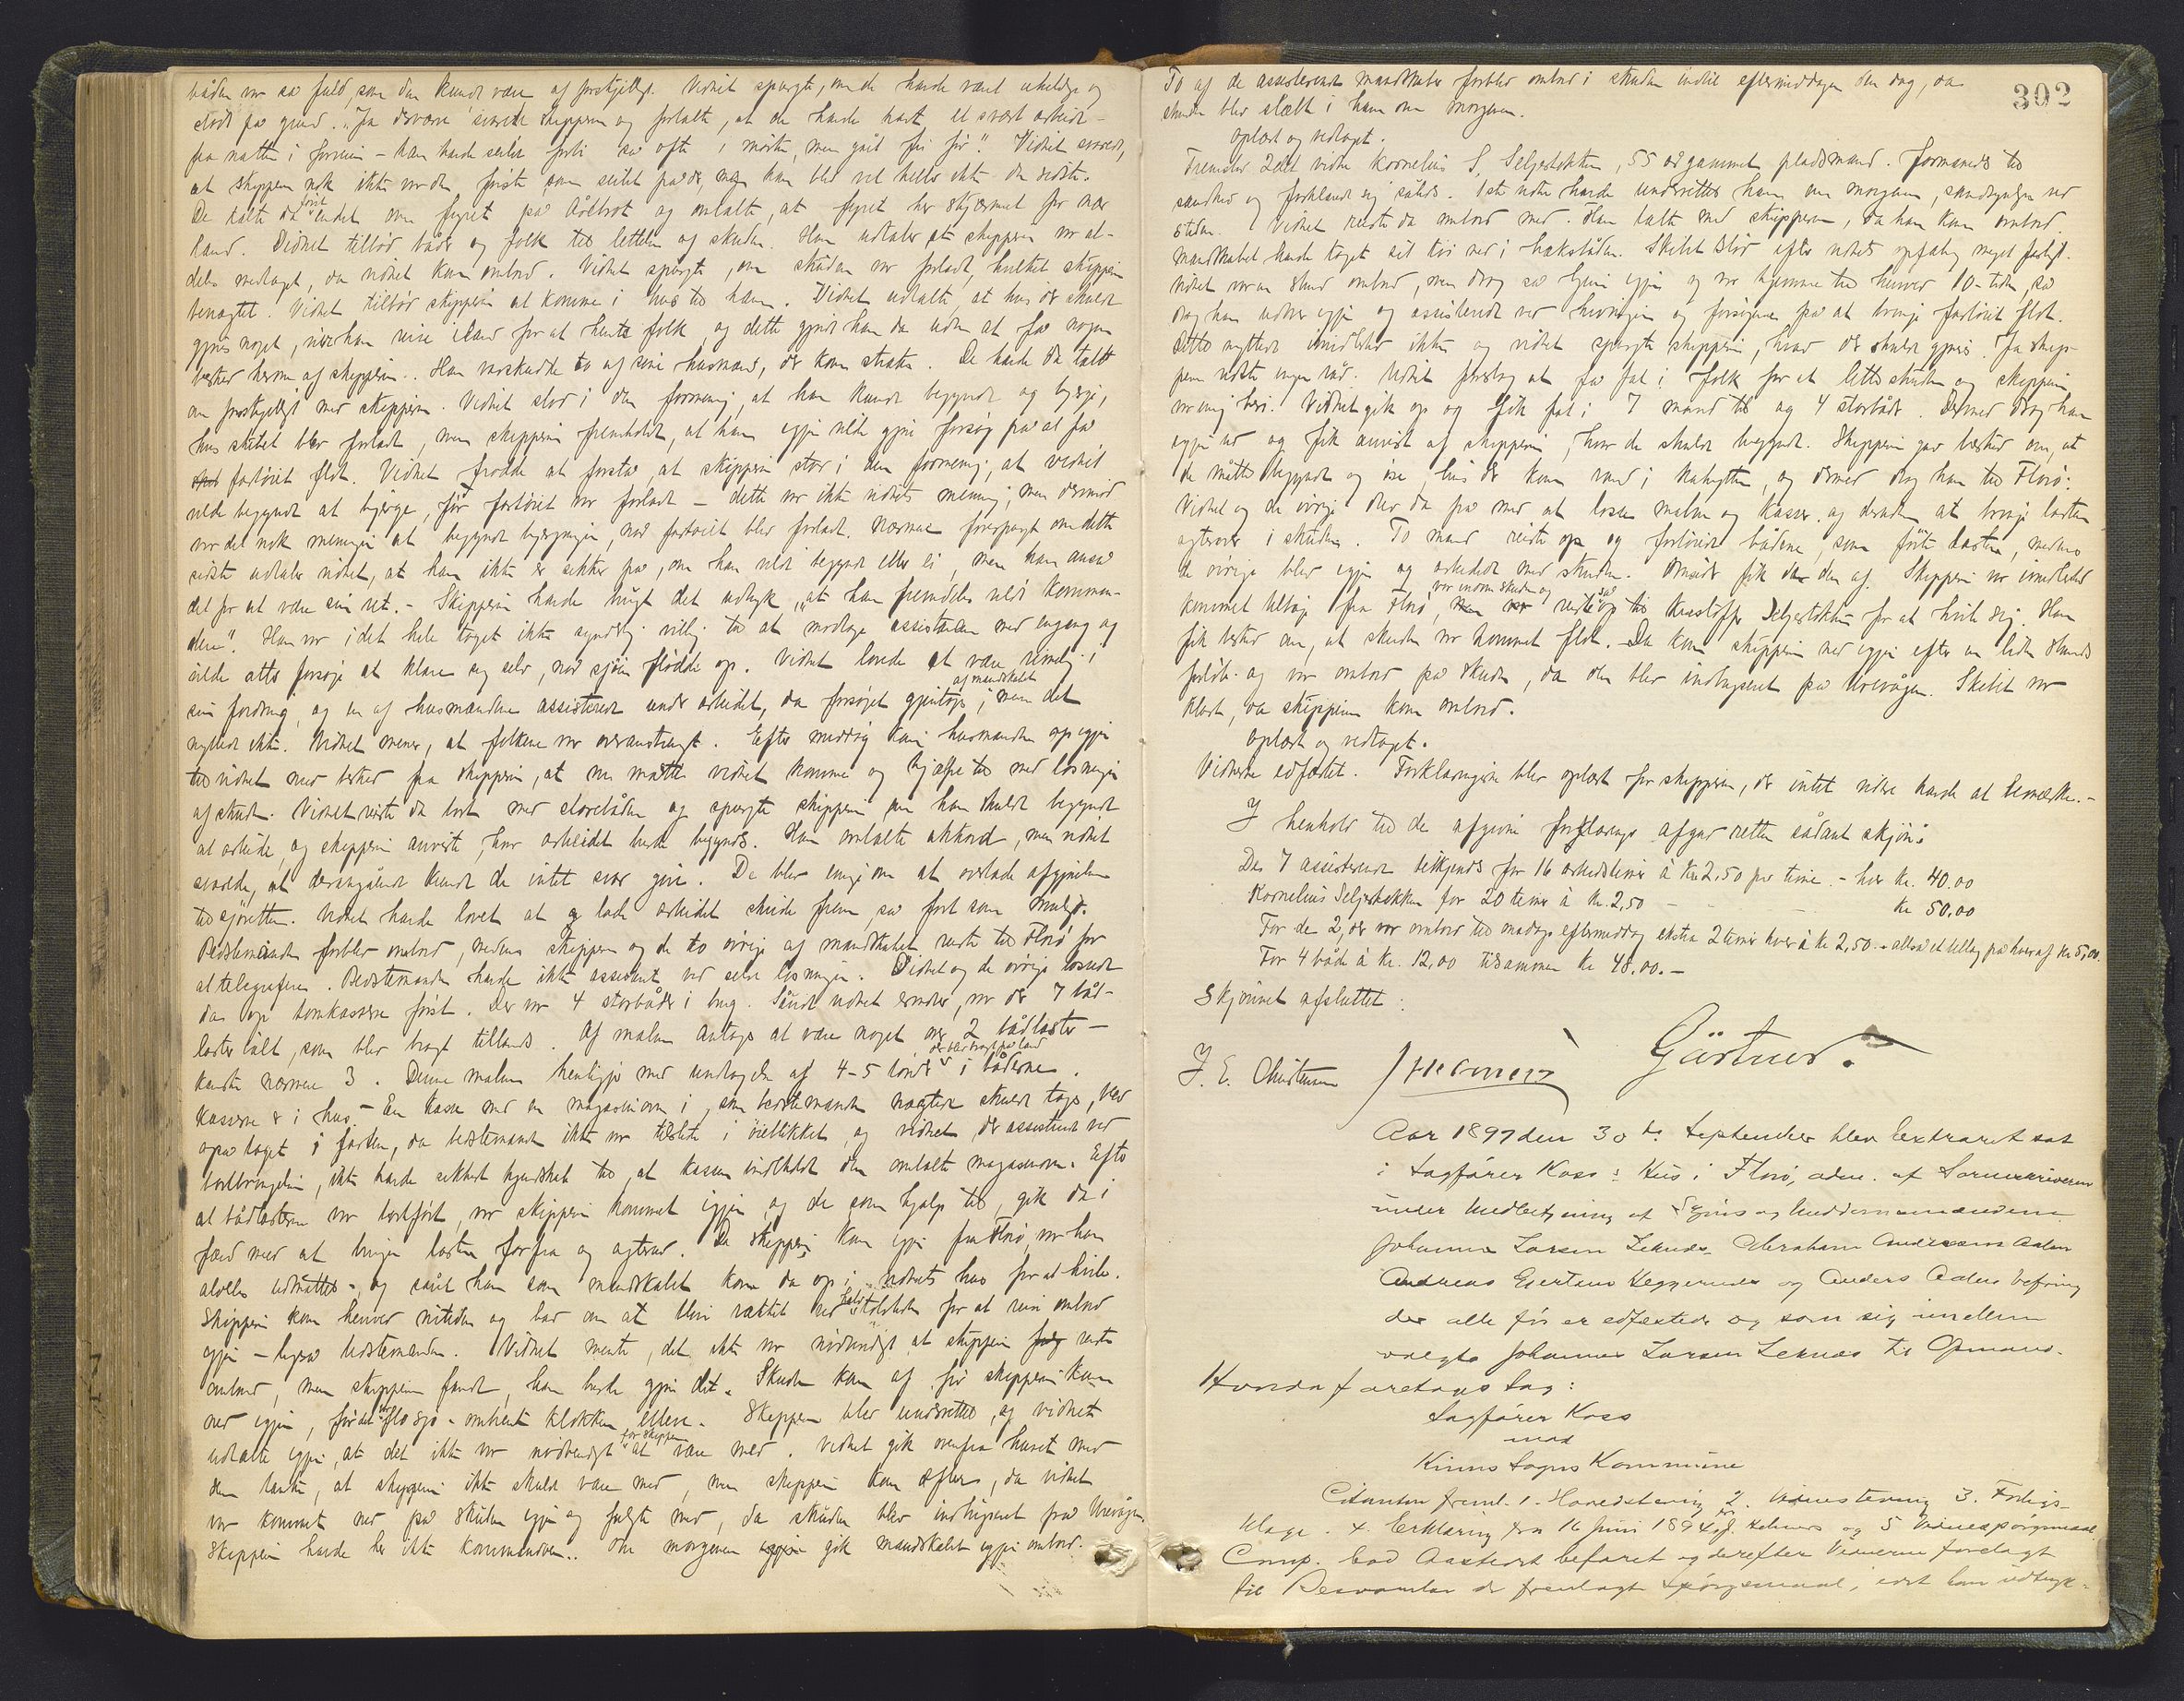 båden var så fuld, som den kunde være af forskjelligt. Vidnet spurgte, om de havde været uheldige og
stødt på grund. "Ja desværre" svarede skipperen og fortalte, at de havde havt et svært arbeide
fra natten i forveien – han havde seilet forbi så ofte i mørke, men gåt fri før". Vidnet svarede,
at skipperen nok ikke var den første som seilet på der, men han blev vel heller ikke den sidste.
De talte da først endel om fyret på Aalbrot og omtalte, at fyret her skjærmet for nær
land. Vidnet tilbød både og folk til lettelse af skuden. Han udtaler at skipperen var al-
deles medtaget, da vidnet kom ombord. Vidnet spurgte, om skuden var forladt, hvilket skipperen
benægtet. Vidnet tilbød skipperen at komme i hus til ham. Vidnet udtalte, at hvis der skulde
gjøres noget, måtte han reise iland for at hente folk, og dette gjorde han da uden at få nogen
besked herom af skipperen. Han varskudde to af sine husmænd, der kom straks. De havde da talt
om forskjelligt med skipperen. Vidnet stod i den formening, at han kunde begynde og bjerge,
hvis skibet blev forladt, men skipperen fremholdt, at han igjen vilde gjøre forsøg på at få
fartøiet flot. Vidnet trodde at forstå, at skipperen stod i den formening, at vidnet
vilde begynde at bjerge, før fartøiet var forladt – dette var ikke vidnets mening; men derimod
var det nok meningen at begynde bjergningen, når fartøiet blev forladt. Nærmere forespurgt om dette
sidste udtaler vidnet, at han ikke er sikker på, om han vilde begynde eller ei, men han anså
det for at være sin ret. – Skipperen havde brugt det udtryk "at han fremdeles vilde komman-
dere". Han var i det hele taget ikke synderlig villig til at modtage assistance med engang og
vilde atter forsøge at klare sig selv, når sjøen flødde op. Vidnet lovede at være rimelig i
sin fordring, og en af husmændene assisterede under arbeidet, da forsøget gjentoges af mandskabet; men det
nyttede ikke. Vidnet mener, at folkene var overanstrengt. Efter middag kom husmanden op igjen
til vidnet med besked fra skipperen, at nu måtte vidnet komme og hjælpe til med losningen
af skuden. Vidnet reiste da bort med storebåden og spurgte skipperen om han skulde begynde
at arbeide, og skipperen anviste, hvor arbeidet burde begyndes. Han omtalte akkord, men vidnet
svarede, at derangående kunde de intet svar give. De blev enige om at overlade afgjørelsen
til sjøretten. Vidnet havde lovet at lade arbeidet skride frem så fort som muligt.
Bedstemanden forblev ombord, medens skipperen og de to øvrige af mandskabet reiste til Florø for
at telegrafere. Bedstemanden havde ikke assisteret ved selve losningen. Vidnet og de øvrige lossede
da op tomkasserne først. Der var 4 storbåder i brug. Såvidt vidnet erindrer, var der 7 båd-
laster ialt, som blev bragt tillands. Af malm antages at være noget over 2 bådlaster –
kanske nærmere 3. Denne malm henligger med undtagelse af 4-5 tønder der blev bragt på land i bådene.
Kasserne er i hus – En kasse med en magasinovn i, som bedstemanden nægtede skulde tages, blev
også taget i farten, da bedstemanden ikke var tilstede i øieblikket, og vidnet, der assisterede ved
bortbringelsen, ikke havde sikkert kjendskab til, at kassen indeholdt den omtalte magasinovn. Efter
at bådlasterne var bortført, var skipperen kommet igjen og de som hjalp til, gik da i
færd med at bringe lasten forfra og agterud. Da skipperen kom igjen fra Florø, var han
aldeles udmattet – og såvel han som mandskabet kom da op i vidnets hus for at hvile.
Skipperen kom henved nitiden og bad om at blive vækket ved halv tolvtiden for at reise ombord
igjen – ligeså bedstemanden. Vidnet mente, det ikke var nødvendigt at skipperen reiste
ombord, men skipperen fandt, han burde gjøre det. Skuden kom af før skipperen kom
ned igjen, før det var flo sjø – omtrent klokken elleve. Skipperen blev underrettet, og vidnet
udtalte igjen, at det ikke var nødvendigt for skipperen at være med. Vidnet gik ovenfra huset med
den tanke, at skipperen ikke skulde være med, men skipperen kom efter, da vidnet
var kommet ned på skuden igjen og fulgte med, da skuden blev indbugseret fra Urevågen.
Skipperen havde her ikke kommandoen. Om morgenen gik mandskabet igjen ombord.
302
To af de assisterende mandskaber forblev ombord i skuden indtil eftermiddagen den dag, da
skuden blev slæbt i havn om morgenen.
Oplæst og vedtaget.
Fremstod 2det vidne Kornelius S. Seljestokken, 55 år gammel pladsmand. Formanedes til
sandhed og forklarede sig således. 1ste vidne havde underrettet ham om morgenen, sandsynligvis ved
tiden. Vidnet reiste da ombord med. Han talte med skipperen, da han kom ombord.
Mandskabet havde taget sit tøi ned i hækbåden. Skibet stod efter vidnets opfatning meget farligt.
Vidnet var en stund ombord, men drog så hjem igjen og var hjemme til henved 10-tiden, så
drog han udover igjen og assisterede ved hivningen og forsøgene på at bringe fartøiet flot.
Dette nyttede imidlertid ikke og vidnet spurgte skipperen, hvad der skulde gjøres. Ja skip-
peren vidste ingen råd. Vidnet foreslog at få fat i folk for at lette skuden og skipperen
var enig heri. Vidnet gik op og fik fat i 7 mand til og 4 storbåde. Dermed drog han
igjen ud og fik anvist af skipperen, hvor de skulde begynde. Skipperen gav besked om, at
de måtte begynde og øse, hvis der kom vand i kahytten, og dermed drog han til Florø.
Vidnet og de øvrige drev da på med at losse malm og kasser og desuden at bringe lasten
agterover i skuden. To mand reiste op og fortøiede bådene, som førte lasten, medens
de øvrige blev igjen og arbeidede med skuden. Omsider fik de den af. Skipperen var imidlertid
kommet tilbage fra Florø, var indom skuden og reiste så op til Kristoffer Seljestokken for at hvile sig. Han
fik besked om, at skuden var kommet flot. Da kom skipperen ned igjen efter en liden stunds
forløb og var ombord på skuden, da den blev indbugseret på Urevågen. Skibet var
klart, da skipperen kom ombord.
Oplæst og vedtaget.
Vidnerne edfæstet. Forklaringerne blev oplæst for skipperen, der intet videre havde at bemærke. –
I henhold til de afgivne forklaringer afgav retten sådant skjøn:
De 7 assisterende tilkjendes for 16 arbeidstimer à kr. 2,50 pr time. – hver kr. 40.00
Kornelius Seljestokken for 20 timer à kr. 2,50 – kr 50,00
For de 2, der var ombord til mandags eftermiddag ekstra 2 timer hver à kr 2,50. – altså et tillæg på hver af kr 5,00.
For 4 både à kr. 12,00 tilsammen kr 48,00. –
Skjønnet afsluttet:
J. E. Christensen
Gärtner.
Aar 1897 den 30te September blev Extraret sat
i Sagfører Koss's Hus i Florø, adm. af Sorenskriveren
under Medbetjening af Skjøns og Meddomsmændene
Johannes Larsen Leknes, Abraham Andersens Aalen
Andreas Gjertsen Heggernes og Anders Aalen Befring
der alle før er edfæstede og som sig imellem
valgte Johannes Larsen Leknes til Opmand.
Hvorda foretoges Sag:
Sagfører Koss
mod
Kinns Sogns Kommune
Citanten freml. 1. Hovedstevning 2. Vidnestevning 3. Forligs-
klage. 4. Erklæring fra 16 Juni 1894 og 5 Vidnespørgsmaal.
Comp. bad Aastedet befaret og derefter Vidnerne forelagt
til Besvarelse de fremlagte Spørgsmaal, idet han udtryk-